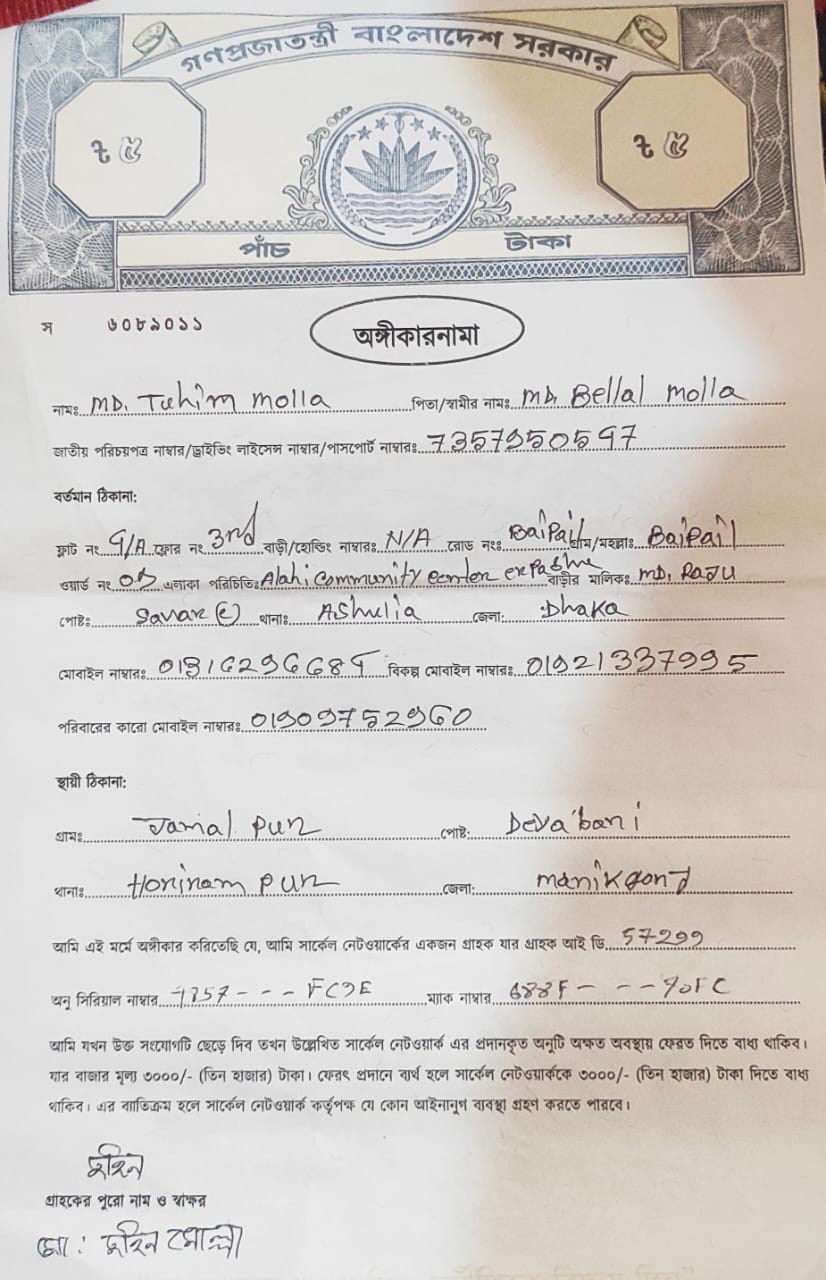 গণপ্রজাতন্ত্রী বাংলাদেশ সরকার
৳ ৫ ৳ ৫
পাঁচ টাকা
স ৬০৮৯০১১
অঙ্গীকারনামা
নামঃ MD. Tuhim Molla পিতা/স্বামীর নামঃ MD. Bellal Molla
জাতীয় পরিচয়পত্র নাম্বার/ড্রাইভিং লাইসেন্স নাম্বার/পাসপোর্ট নাম্বারঃ 7357950597
বর্তমান ঠিকানা:
ফ্লাট নং 9/A ফ্লোর নং 3rd বাড়ী/হোল্ডিং নাম্বারঃ N/A রোড নংঃ Baipail গ্রাম/মহল্লাঃ Baipail
ওয়ার্ড নং এলাকা পরিচিতিঃ Alahi Community center er pashe বাড়ীর মালিকঃ MD. Raju
পোষ্টঃ Savar (C) থানাঃ Ashulia জেলা: Dhaka
মোবাইল নাম্বারঃ বিকল্প মোবাইল নাম্বারঃ 01921337995
পরিবারের কারো মোবাইল নাম্বারঃ 01909752960
স্থায়ী ঠিকানা:
গ্রামঃ Jamal pur পোষ্ট:
থানাঃ Horiram pur জেলা: Manikgonj
আমি এই মর্মে অঙ্গীকার করিতেছি যে, আমি সার্কেল নেটওয়ার্কের একজন গ্রাহক যার গ্রাহক আই ডি 57299
অনু সিরিয়াল নাম্বার 1357- - - FC9E ম্যাক নাম্বার 688F - - - 90FC
আমি যখন উক্ত সংযোগটি ছেড়ে দিব তখন উল্লেখিত সার্কেল নেটওয়ার্ক এর প্রদানকৃত অনুটি অক্ষত অবস্থায় ফেরত দিতে বাধ্য থাকিব।
যার বাজার মূল্য ৩০০০/- (তিন হাজার) টাকা। ফেরৎ প্রদানে ব্যর্থ হলে সার্কেল নেটওয়ার্ককে ৩০০০/- (তিন হাজার) টাকা দিতে বাধ্য
থাকিব। এর ব্যতিক্রম হলে সার্কেল নেটওয়ার্ক কর্তৃপক্ষ যে কোন আইনানুগ ব্যবস্থা গ্রহণ করতে পারবে।
তুহিন
গ্রাহকের পুরো নাম ও স্বাক্ষর
মো: তুহিন মোল্লা